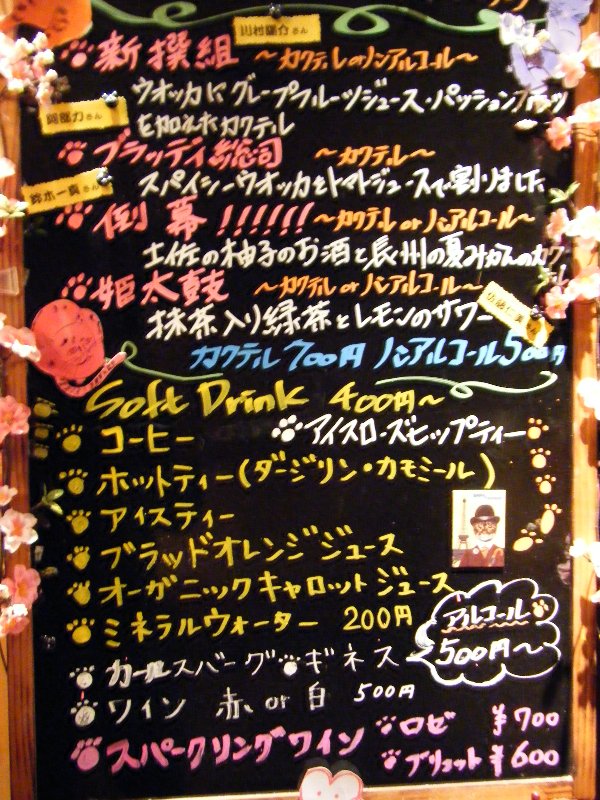 川村陽介さん
新撰組 〜カクテルorノンアルコール〜
ウオッカにグレープフルーツジュース・パッションフルーツ
を加えたカクテル
阿部力さん
ブラッディ総司 〜カクテル〜
スパイシーウオッカをトマトジュースで割りました
鈴木一真さん
倒幕!!!!!! 〜カクテル or ノンアルコール〜
土佐の柚子のお酒と長州の夏みかんのカクテル
姫太鼓 〜カクテル or ノンアルコール〜
抹茶入り緑茶とレモンのサワー
カクテル700円 ノンアルコール500円
Soft Drink 400円〜
コーヒー アイスローズヒップティー
ホットティー(ダージリン・カモミール)
アイスティー
ブラッドオレンジジュース
オーガニックキャロットジュース
ミネラルウォーター 200円
アルコール
500円〜
カールスバーグ ギネス
ワイン 赤 or 白 500円
スパークリングワイン ロゼ ¥700
ブリュット ¥600